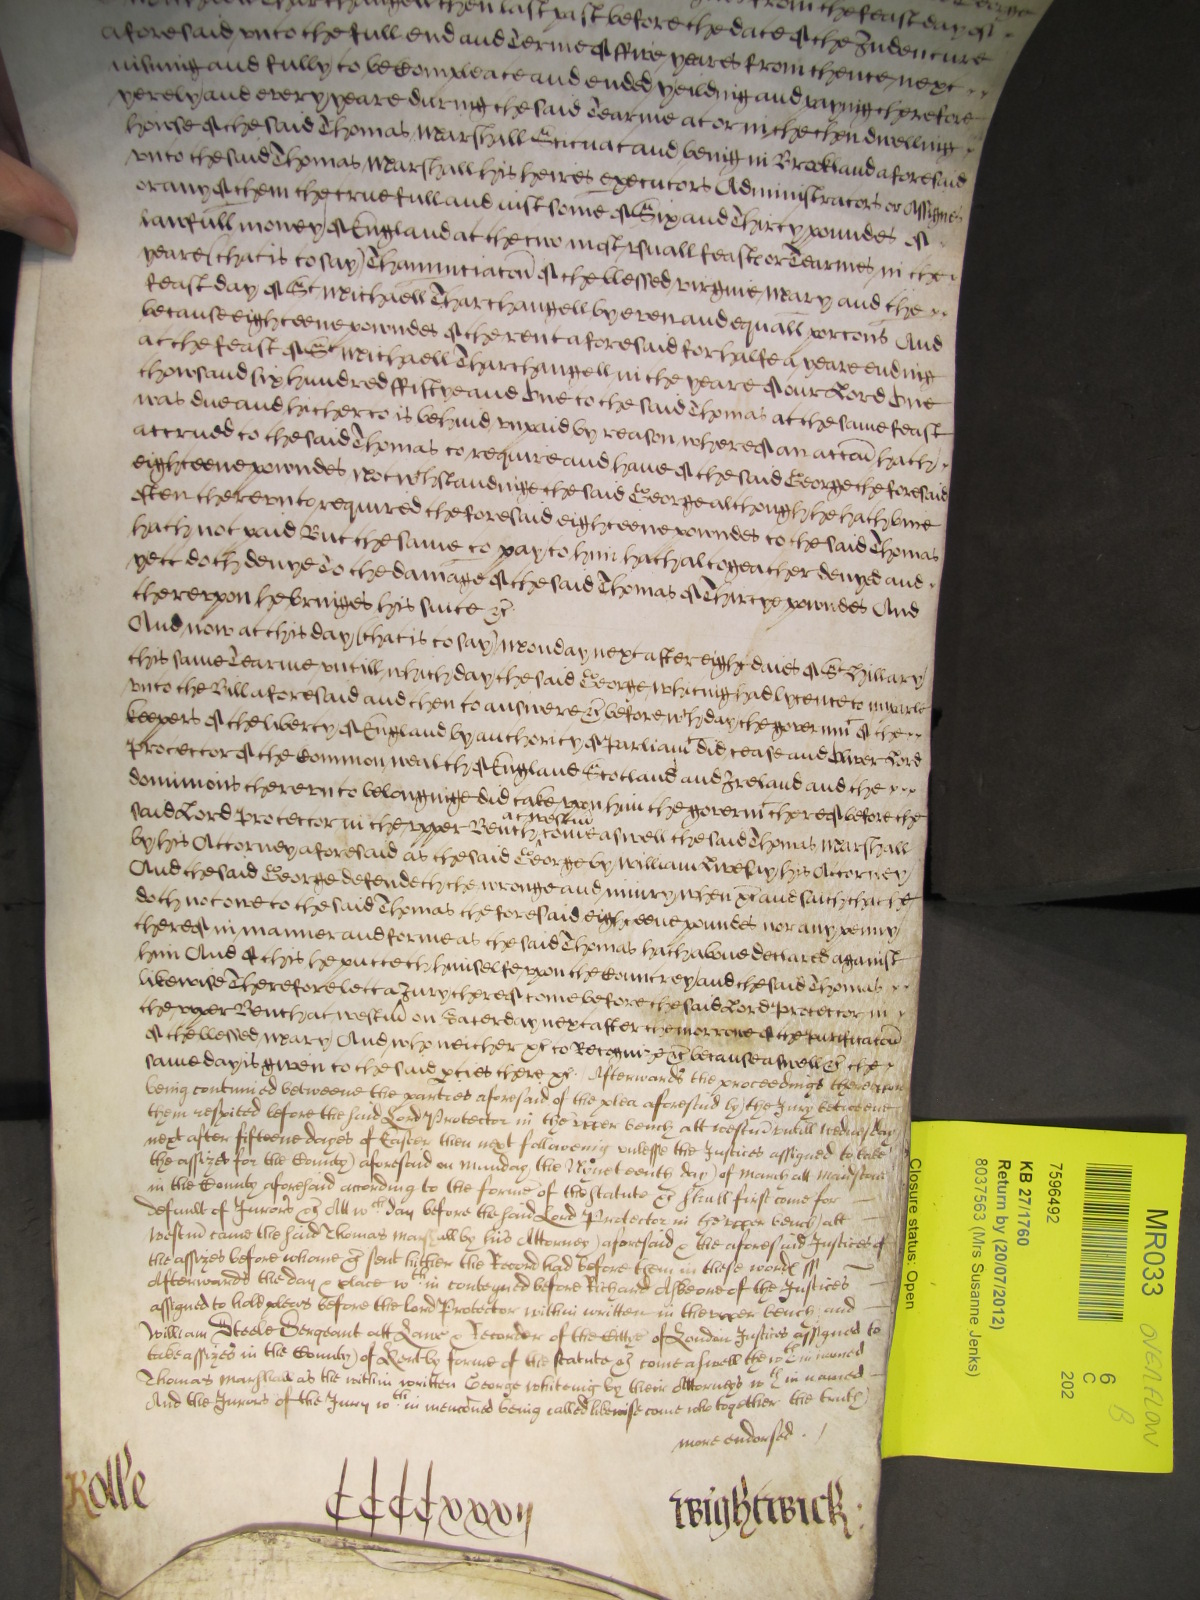 Tharchangell then last past before the date of the Indenture
aforesaid vnto the full end and Terme of ffive yeares from thence next
ensuing and fully to be Compleate and ended yeilding and paying therefore
yerely and every yeare during the said Tearme at or in the then dwelling
house of the said Thomas Marshall Scituat and being in Brookland aforesaid
vnto the said Thomas Marshall his heires executors Administrators or Assignes
or any of them the true full and iust some of Six and Thirty poundes of
lawfull money of England at the two most vsuall feastes or Tearmes in the
yeare (that is to say) Thannunciacon of the blessed virgine Mary and the
feast day of St Michaell Tharchangell by even and equall porcons And
because eighteene powndes of the rent aforesaid for halfe a yeare ending
at the feast of St Michaell Tharchangell in the yeare of our Lord One
thousand six hundred ffiftye and One to the said Thomas at the same feast
was due and hitherto is behind vnpaid by reason whereof an accon hath
accrued to the said Thomas to require and haue of the said George the foresaid
eighteene powndes Notwthstandinge the said George although he hath bine
often therevnto required the foresaid eighteene powndes to the said Thomas
hath not paid But the same to pay to him hath altogeather denyed and
yett doth denye To the damage of the said Thomas of Thirtye powndes And
therevpon he bringes his suite &c
And now at this day (that is to say) Monday next after eight daies of St Hillary
this same Tearme vntill which day the said George Whiting had lycence to imparle
vnto the Bill aforesaid and then to answere &c before wch day the governmt of the
keepers of the liberty of England by authority of Parliamt did cease and Oliver Lord
Protector of the Common wealth of England Scotland and Ireland and the
dominions therevnto belonginge did take vpon him the governmt thereof before the
at Westm
said Lord Protector in the vpper Bench come aswell the said Thomas Marshall
by his Attorney aforesaid as the said George by William his Attorney
And the said George defendeth the wronge and iniury when &c and saith that he
doth not owe to the said Thomas the foresaid eighteene poundes nor any penny
thereof in manner and forme as the said Thomas hath aboue declared against
him And of this he putteth himselfe vpon the Countrey and the said Thomas
likewise Therefore lett a Iury thereof come before the said Lord Protector in
the vpper Bench at westm on Saterday next after the morrowe of the Purificacon
of the blessed Mary And who neither &c to Recognize &c because aswell &c the
same day is given to the said pties there &c. Afterwards the proceedings therevpon
being continued betweene the parties aforesaid of the plea aforesaid by the Jury betweene
them respited before the said Lord Protector in the vpper bench att westm vntill wednesday
next after fifteene dayes of Easter then next followeing vnlesse the Justices assigned to take
the assizes for the County aforesaid on Munday the Nyneteenth day of March att Maidston
in the County aforesaid according to the forme of the statute &c shall first come for
default of Jurors &c Att wch day before the said Lord Protector in the vpper bench att
westm came the said Thomas Marshall by his Attorney aforesaid & the aforesaid Justices of
the assizes before whome &c sent hither the Record had before them in these words ss
Afterwards the day & place wthin conteyned before Richard Aske one of the Justices
assigned to hold pleas before the lord Protector within written in the vpper bench and
William Steele Sergeant att Lawe & Recorder of the Citty of London Justices assigned to
take assizes in the County of Kent by forme of the statute &c come aswell the wthin named
Thomas Marshall as the within written George Whiteing by their Attorneys wthin named
And the Jurors of the Jury wthin menconed being called likewise come who together the truth
more endorsed
Rolle CCCCxxxvij Wightwick
MR033
OVERFLOW
B
6
C
202
7596492
KB 27/1760
Return by (20/07/2012)
8037563 (Mrs Susanne Jenks)
Closure status: Open